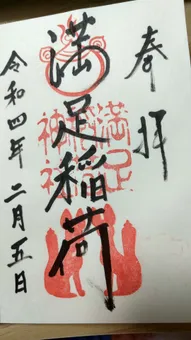 奉拝
満足稲荷
満足稲荷神社
令和四年二月五日